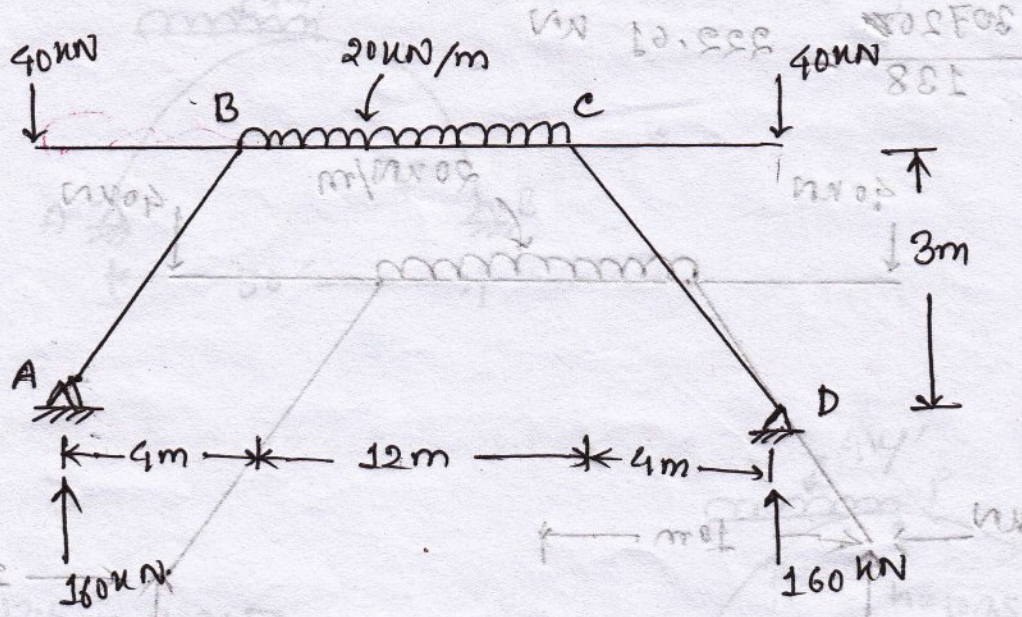 40KN 20KN/m 40KN
B C
3m
A D
4m 12m 4m
160KN 160KN